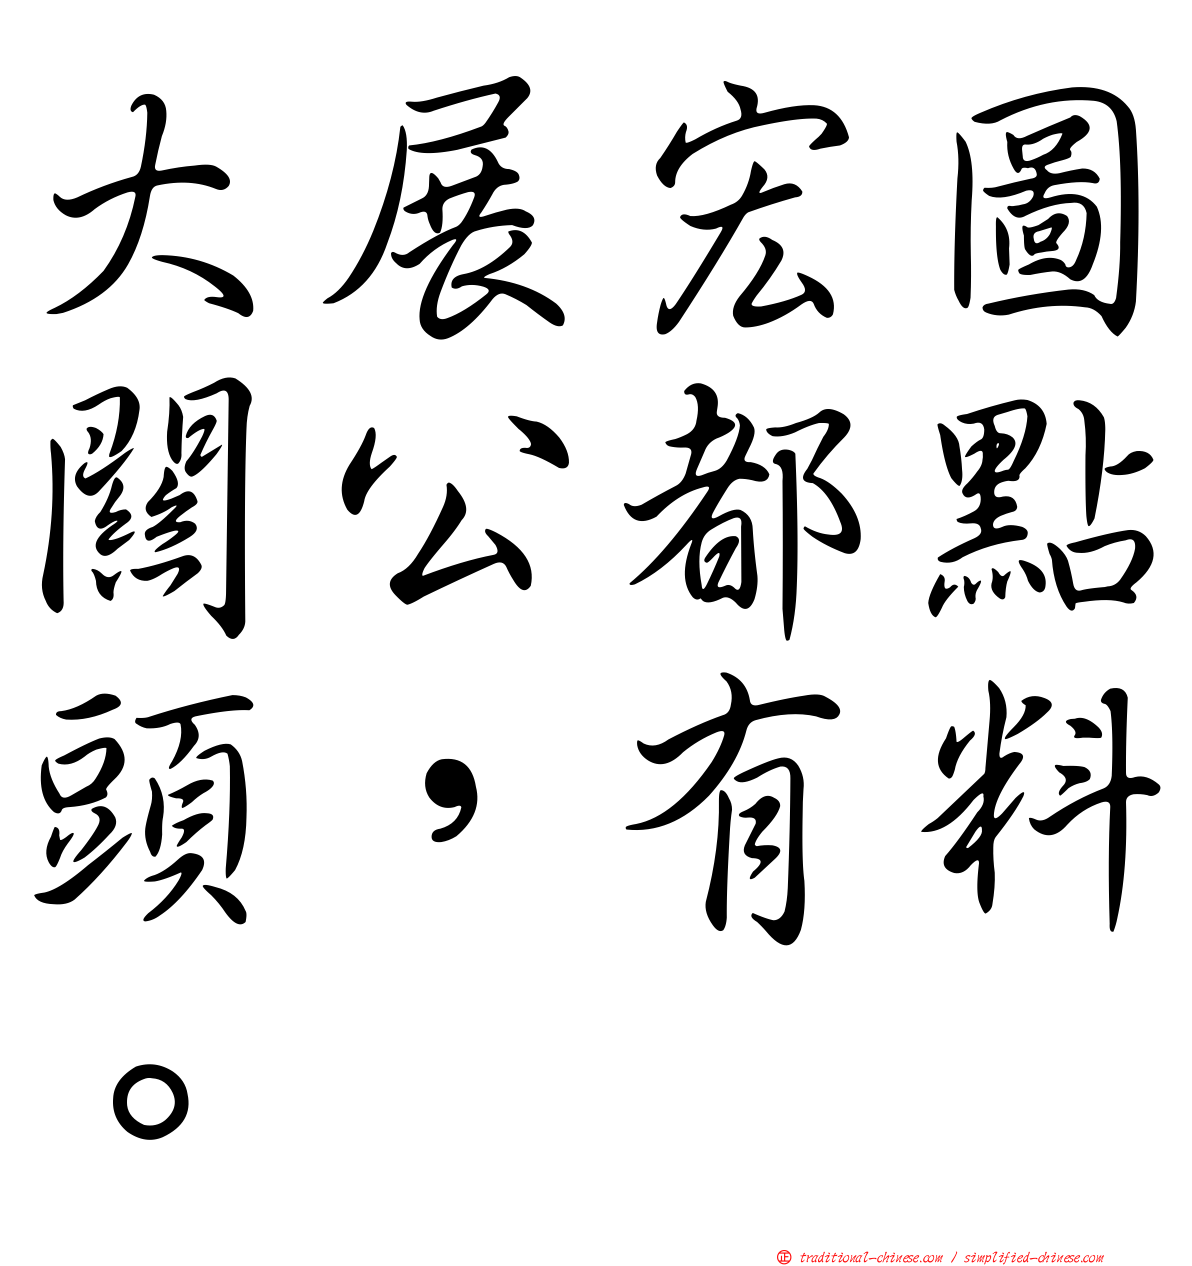 大展宏圖
關公都點
頭，有料
。
正 traditional-chinese.com / simplified-chinese.com